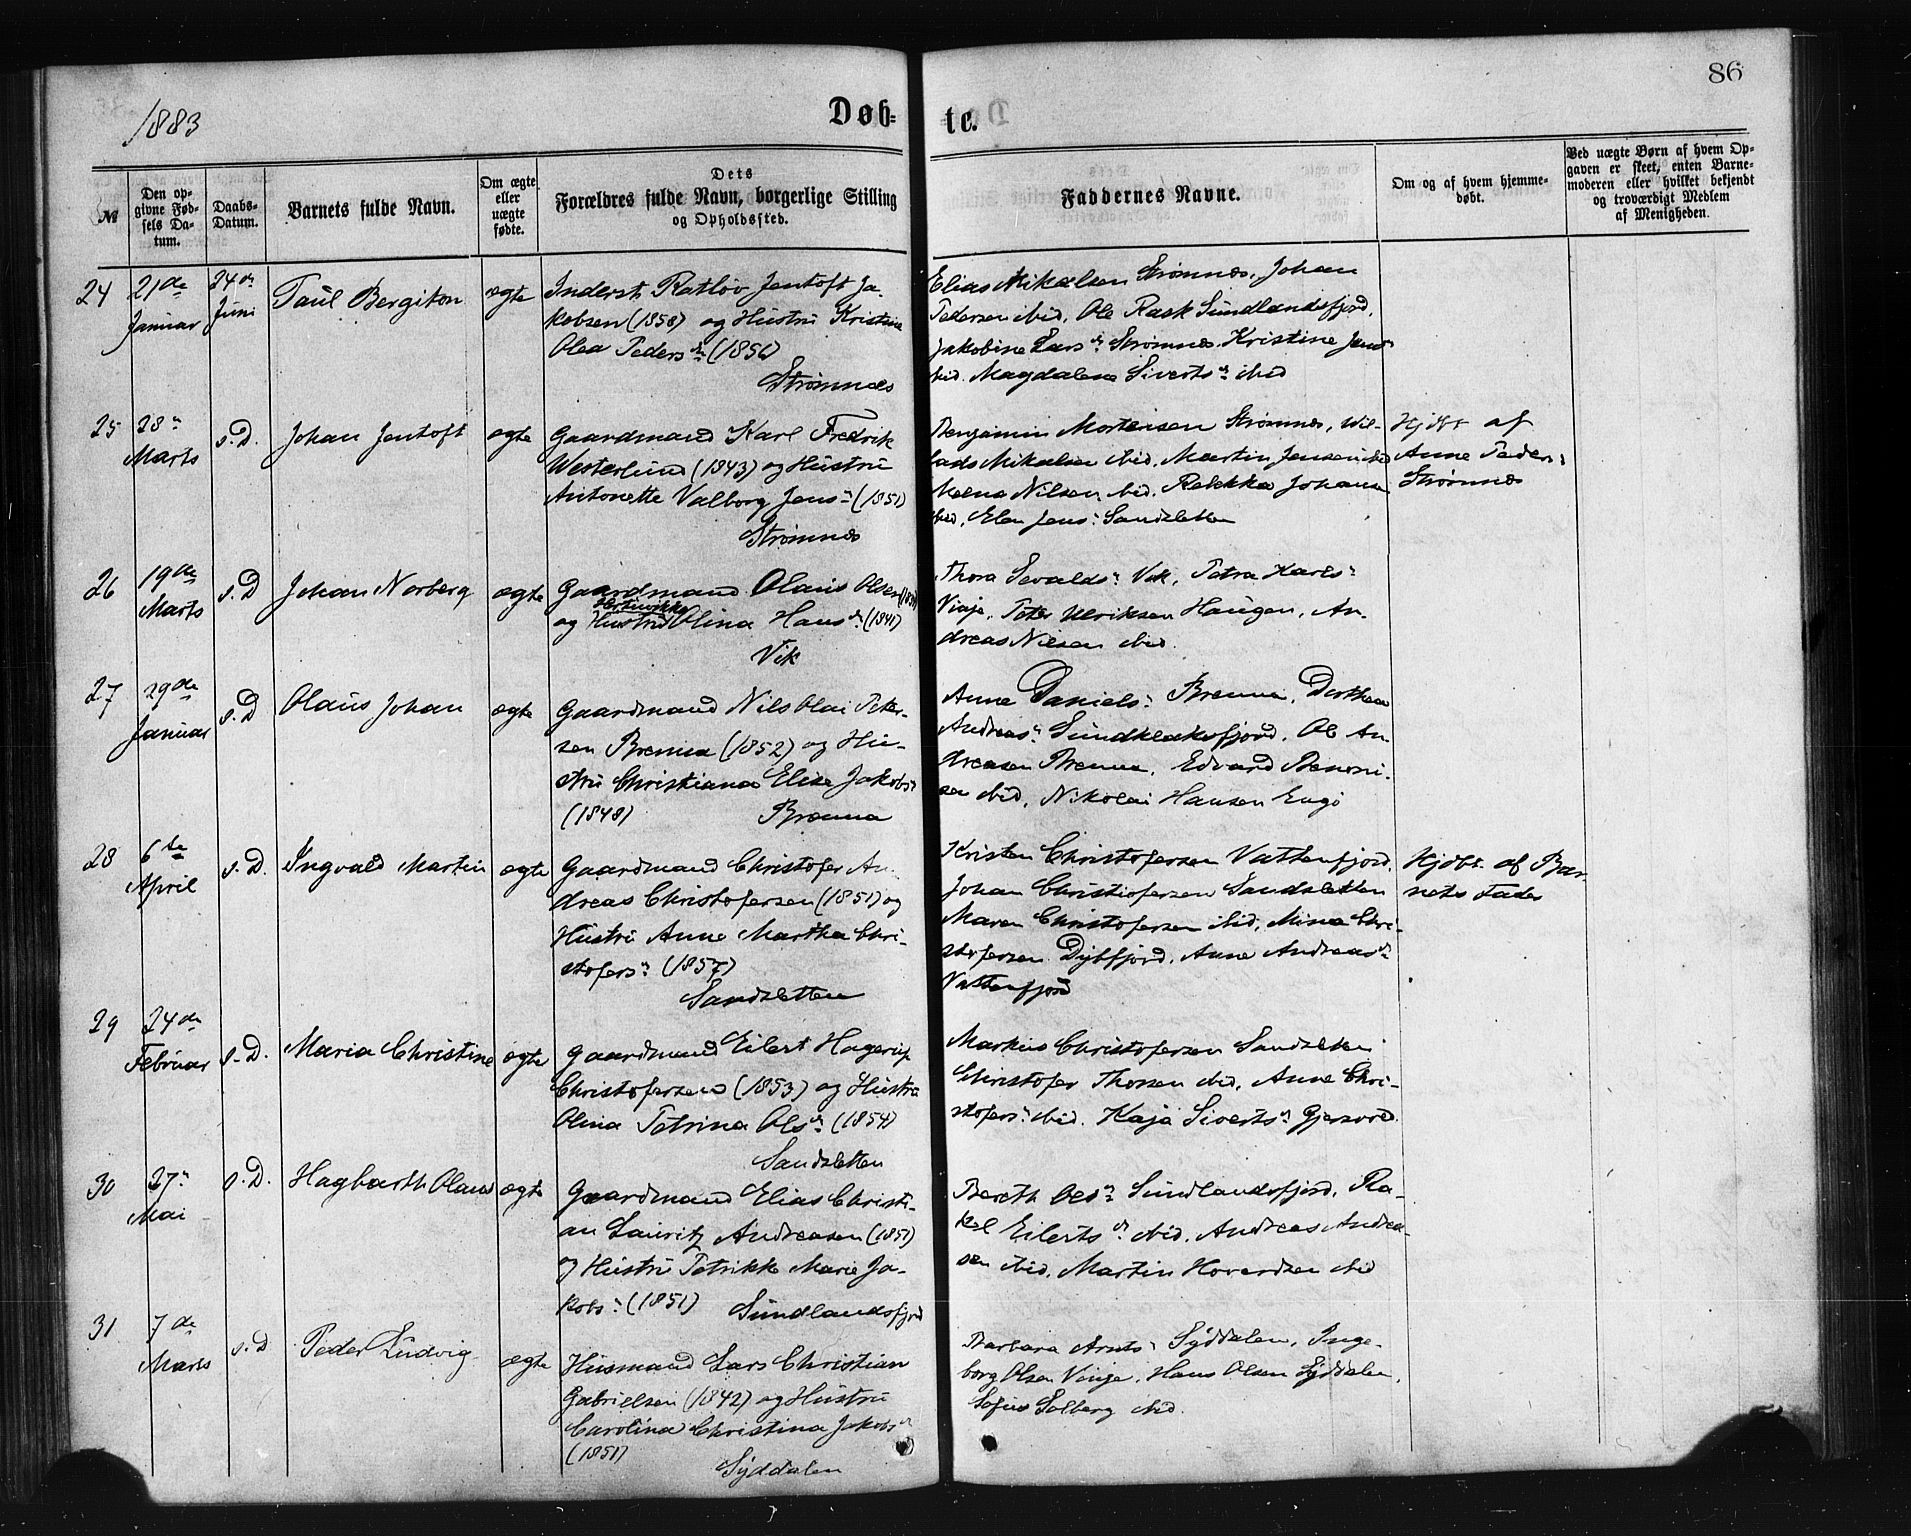 86
1883
Døb-
te.
№
Den op-
givne Fød-
sels Da-
tum.
Daabs-
Datum.
Barnets fulde Navn.
Om ægte
eller
uægte
fødte.
Dets
Forældres fulde Navn, borgerlige Stilling
og Opholdssted.
Faddernes Navne.
Om og af hvem hjemme-
døbt.
Ved uægte Børn af hvem Op-
gaven er skeet, enten Barne-
moderen eller hvilket bekjendt
og troværdigt Medlem
af Menigheden.
24
21de
Januar
24de
Juni
Paul Bergiton
ægte
Inderst Ratløv Jentoft Ja-
kobsen (1858) og Hustru Kristine
Olea Peders dr (1856)
Strømnæs
Elias Mikalsen Strømnæs, Johan
Pedersen ibid, Ole Rask Sundlandsfjord,
Jakobine Lars dr Strømnæs. Kristine Jens
ibid. Magdalena Siverts dr ibid
25
28n
Marts
s.D.
Johan Jentoft
ægte
Gaardmand Karl Fredrik
Westerlund (1843) og Hustru
Antonette Valborg Jens: (1851)
Strømnæs
Benjamin Mortensen Strømnæs, Wil-
lads Mikalsen ibid. Martin Jensen ibid
Nilsen ibid. Rekkka Johansen
ibid, Elen Jens: Sandsletten
Hjdbt af
Anne Peders:
Strømnæs
26
19de
Marts
s.D
Johan Norberg
ægte
Gaardmand Olaus Olsen
og Hustru Olina Hans dr (1841)
Vik
Thora Sevalds: Vik, Petra Karls:
Vinje, Peter Ulriksen Haugen, An-
dreas Nilsen ibid.
27
29de
Januar
s.D
Olaus Johan
ægte
Gaardmand Nils Olai Peter-
sen Brenna (1852) og Hu-
stru Christiana Elisa Jakobs:
(1848) Brenna
Anne Daniels: Brenna, Dorthea
Andreas: Sundklakfjord. Ole An-
dreasen Brenna, Edvard Benoni-
sen ibid, Nikolai Hansen Engø
28
6te
April
s.D.
Ingvald Martin
ægte
Gaardmand Christofer An-
dreas Christofersen (1851) og
Hustru Anne Martha Chri-
stofers: (1857)
Sandsletten
Kristen Christofersen Vattenfjord,
Johan Christofersen Sandsletten
Maren Christofersen ibid, Mina Chri-
stofersen Dybfjord, Anne Andreas dr
Vattenfjord
Hjdbt. af Bar-
nets Fader
29
24de
Februar
s.D.
Maria Christine
ægte
Gaardmand Eilert Hagerup
Christofersen (1853) og Hustru
Olina Petrina Ols dr (1854)
Sandsletten
Markus Christofersen Sandsletten
Christofer Thorsen ibid, Anne Chri-
stofers: ibid. Kaja Siverts dr
30
27n
Mai
s.D.
Hagbarth Olaus
ægte
Gaardmand Elias Christi-
an Lauritz Andreasen (1851)
og Hustru Petrikke Marie Ja-
kobs: (1851) Sundlandsfjord
Bereth Ols dr Sundlandsfjord, Ra-
kel Eilerts dr ibid. Andreas Andrea-
sen ibid, Martin Hovardsen ibid
31
7de
Marts
s.D
Peder Ludvig
ægte
Husmand Lars Christian
Gabrielsen (1842) og Hustru
Carolina Christina Jakobs dr
(1851)
Syddalen
Barbara Arnts: Syddalen, Inge-
borg Olsen Vinje, Hans Olsen Syddalen,
Sofus Solberg ibid.